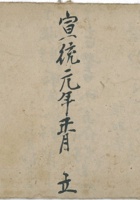 宣統元年正月 立